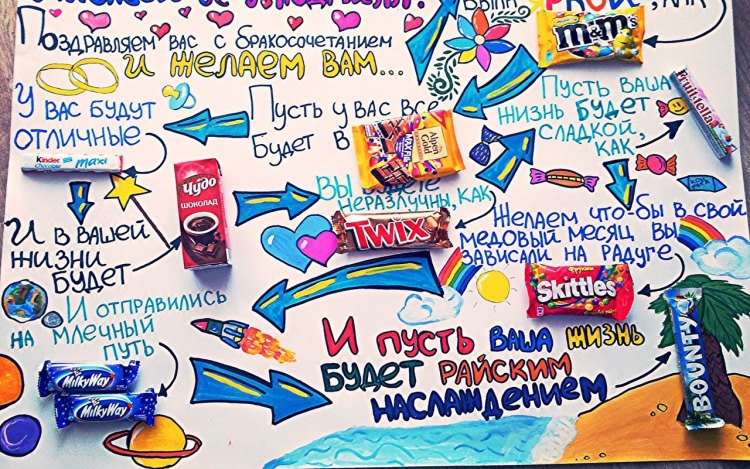 Поздравляем вас с бракосочетанием
и желаем вам...
как
m&m's
Пусть ваша
жизнь будет
сладкой,
как
Fruittella
Пусть у вас все
будет в
Alpen Gold
MAX FUN
У вас будут
отличные
Kinder Chocolate maxi
И в вашей
жизни
будет
Чудо
ШОКОЛАД
Вы
неразлучны, как
TWIX
Желаем что-бы в свой
медовый месяц вы
зависали на радуге
Фрукты
Skittles
И отправились
на млечный
путь
MilkyWay
MilkyWay
И пусть ваша жизнь
будет райским
наслаждением
BOUNTY